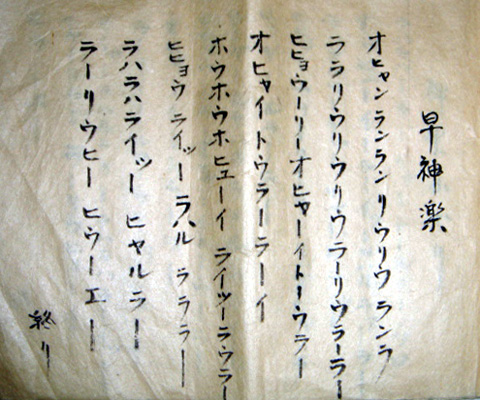 早神楽
オヒャンランランリウリウランラ
ララリウリウリウリウラーリウラーラー
ヒヒョウーリーオヒャーイトーウラー
オヒャイトウラーラーイ
ホウホウホヒューイ ライツーラウラー
ヒヒョウライツー ラハル ラララー
ラハラハライツー ヒャルラー
ラーリウヒー ヒウーエー
終り